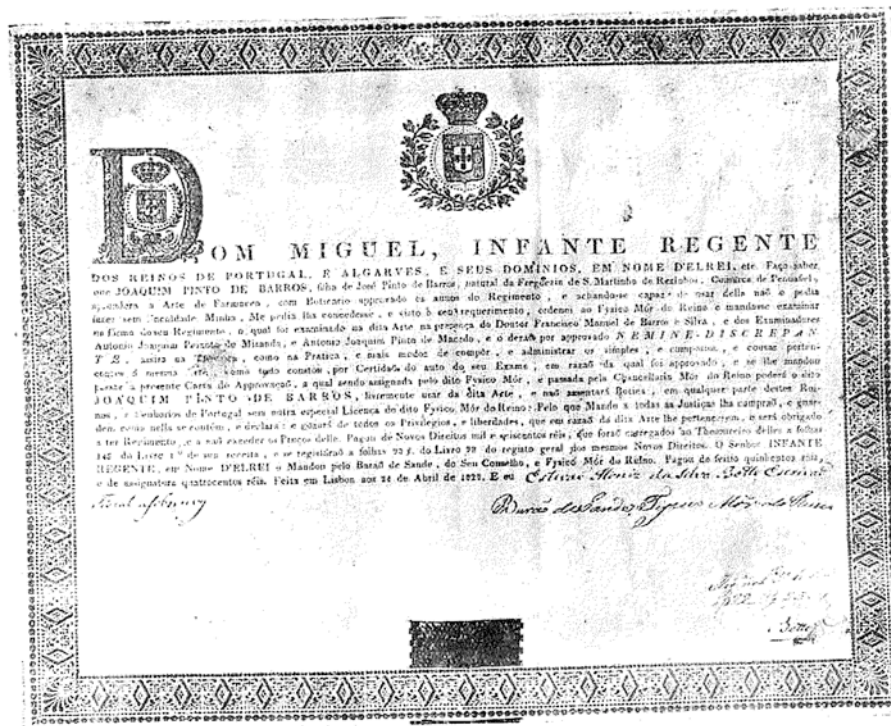 DOM MIGUEL, INFANTE REGENTE
DOS REINOS DE PORTUGAL, E ALGARVES, E SEUS DOMINIOS, EM NOME D'ELREI, etc. Faço saber,
que JOAQUIM PINTO DE BARROS, filho de José Pinto de Barros, natural da Freguezia de S. Martinho de Comarca de Penafiel,
aprendera a Arte de Farmacia, com Boticario approvado os annos do Regimento, e achando-se capaz de usar della naõ o podia
fazer sem Faculdade Minha, Me pedia lha concedesse, e visto o seu requerimento, ordenei ao Fysico Mór do Reino o mandasse examinar
na fórma do seu Regimento, o qual foi examinado na dita Arte na presença do Doutor Francisco Manuel de Barros e Silva, e dos Examinadores
Antonio Joaquim de Miranda, e Antonio Joaquim Pinto de Macedo, e o deraõ por approvado NEMINE DISCREPAN
TE, assim na como na Pratica, e mais modos de compôr, e administrar os simples, e compostos, e cousas perten-
centes á mesma Arte, como tudo constou por Certidaõ do auto do seu Exame, em razaõ da qual foi approvado, e se lhe mandou
passar a presente Carta de Approvaçaõ, a qual sendo assignada pelo dito Fysico Mór, e passada pela Chancellaria Mór do Reino poderá o dito
JOAQUIM PINTO DE BARROS, livremente usar da dita Arte, e naõ assentará Botica, em qualquer parte destes Rei-
nos, e Senhorios de Portugal sem outra especial Licença do dito Fysico Mór do Reino: Pelo que Mando a todas as Justiças lha cumpraõ, e guar-
dem como nella se contém, e declara: e gozará de todos os Privilegios, e liberdades, que em razaõ da dita Arte lhe pertencerem, e será obrigado
a ter Regimento, e a naõ exceder os Preços delle. Pagou de Novos Direitos mil e seiscentos réis, que foraõ carregados ao Thesoureiro delles a folhas
do Livro 1º de sua receita, e se registáraõ a folhas do Livro do registo geral dos mesmos Novos Direitos. O Senhor INFANTE
REGENTE, em Nome D'ELREI o Mandou pelo Baraõ de Sande, do Seu Conselho, e Fysico Mór do Reino. Pagou de feitio quinhentos réis,
e de assignatura quatrocentos réis. Feita em Lisboa aos de Abril de E eu Estevaõ da Silva Botto
Baraõ de Sande, Mór do
Botto